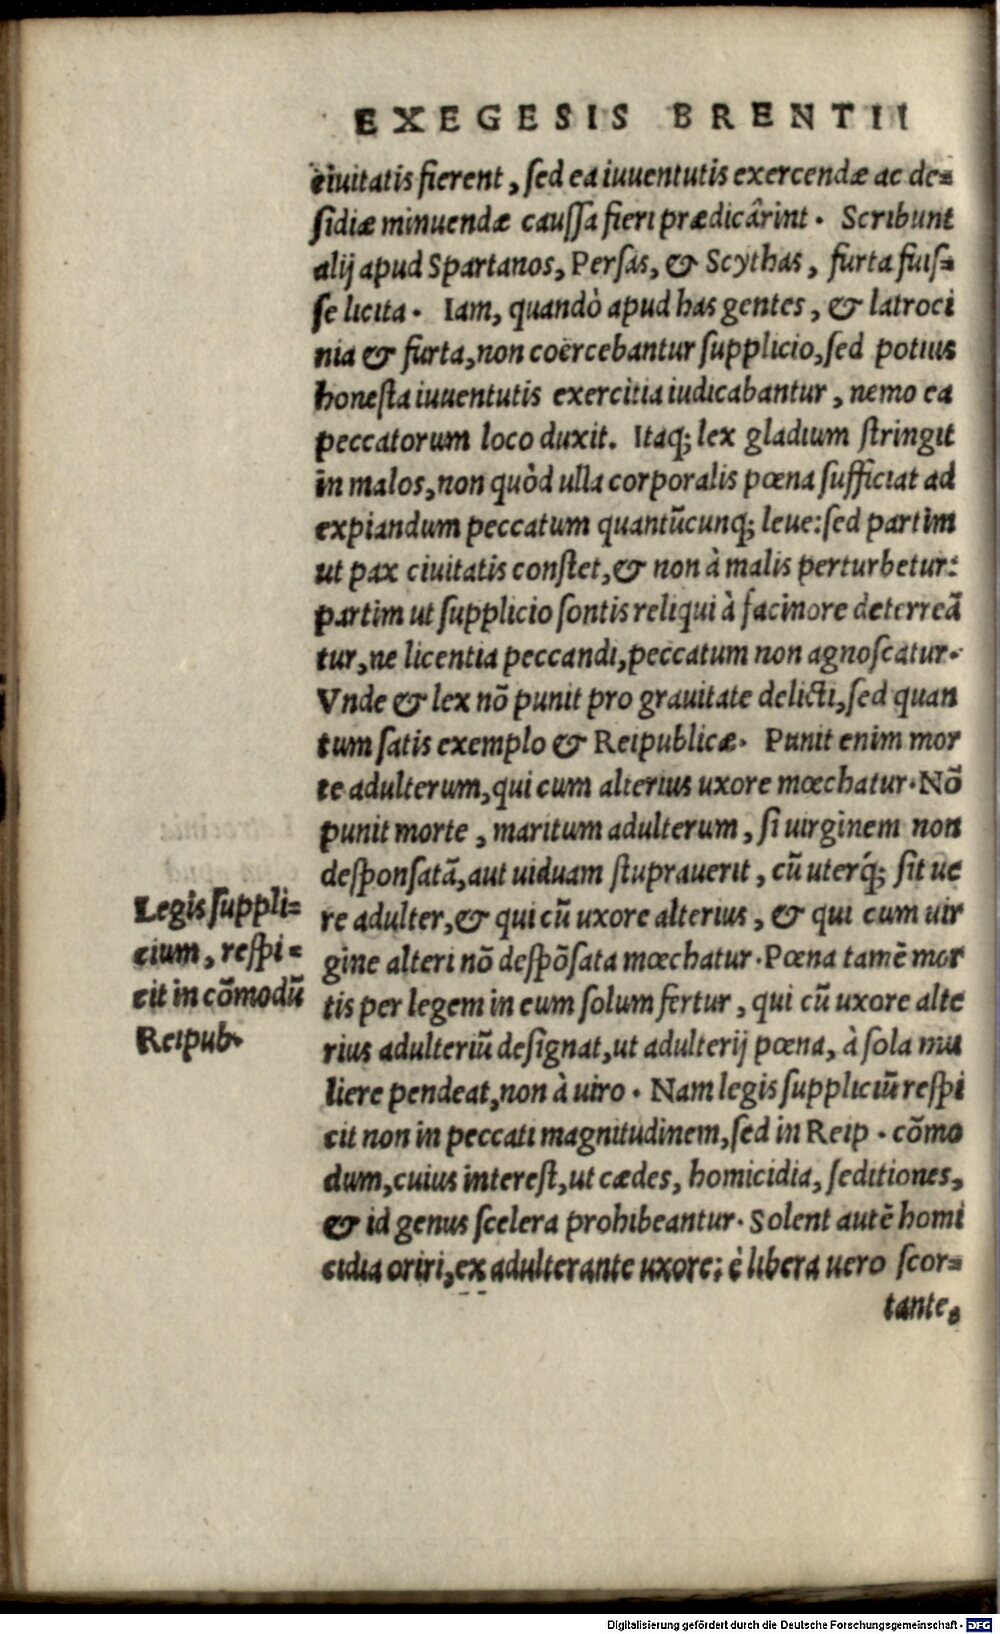 EXEGESIS BRENTII
ciuitatis fierent, sed ea iuuentutis exercendæ ac de=
sidiæ minuendæ caussa fieri prædicârint. Scribunt
alij apud Spartanos, Persas, & Scythas, furta fuis=
se licita. Iam, quandò apud has gentes, & latroci
nia & furta, non coërcebantur supplicio, sed potius
honesta iuuentutis exercitia iudicabantur, nemo ea
peccatorum loco duxit. Itaq; lex gladium stringit
in malos, non quòd ulla corporalis pœna sufficiat ad
expiandum peccatum quantũcunq; leue: sed partim
ut pax ciuitatis constet, & non à malis perturbetur:
partim ut supplicio sontis reliqui à facinore deterreã
tur, ne licentia peccandi, peccatum non agnoscatur.
Vnde & lex nõ punit pro grauitate delicti, sed quan
tum satis exemplo & Reipublicæ. Punit enim mor
te adulterum, qui cum alterius uxore mœchatur. Nõ
punit morte, maritum adulterum, si uirginem non
desponsatã, aut uiduam stuprauerit, cũ uterq́; sit ue
re adulter, & qui cũ uxore alterius, & qui cum uir
gine alteri nõ despõsata mœchatur. Pœna tamẽ mor
tis per legem in eum solum fertur, qui cũ uxore alte
rius adulteriũ designat, ut adulterij pœna, à sola mu
liere pendeat, non à uiro. Nam legis suppliciũ respi
cit non in peccati magnitudinem, sed in Reip. cõmo
dum, cuius interest, ut cædes, homicidia, seditiones,
& id genus scelera prohibeantur. Solent autẽ homi
cidia oriri, ex adulterante uxore: è libera uero scor=
tante,
Legis suppli=
cium, respi=
cit in cõmodũ
Reipub.
Digitalisierung gefördert durch die Deutsche Forschungsgemeinschaft - DFG